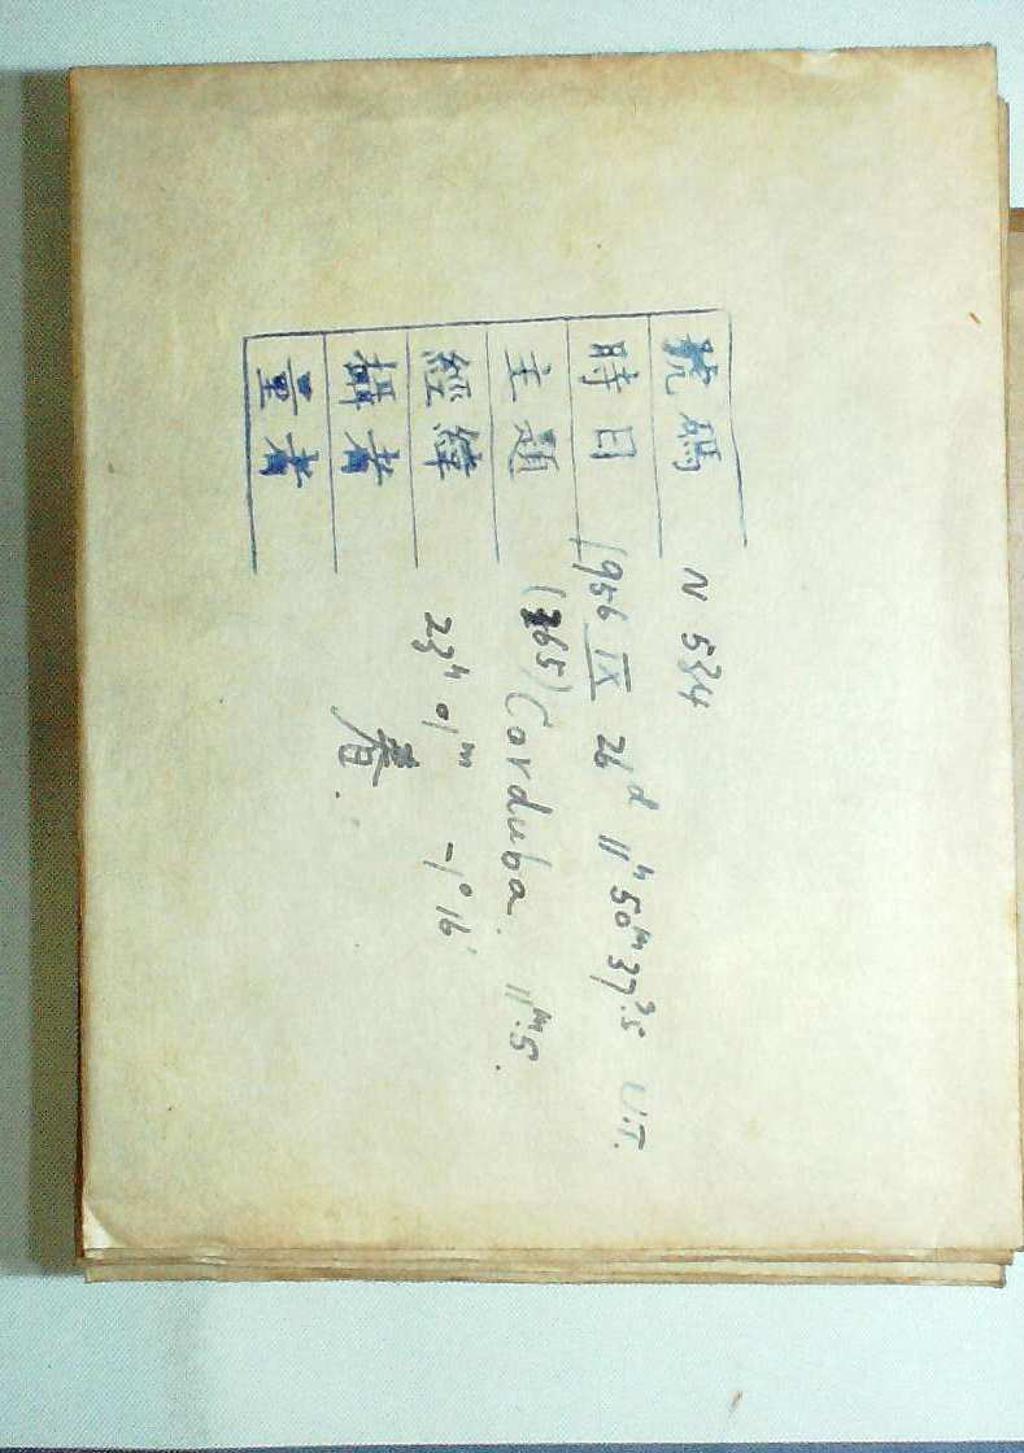 號碼 N 534
時日 1956 IX 26ᵈ 11ʰ 50ᵐ 37ˢ.5 U.T.
主題 (365) Corduba. 11ᵐ.5.
經緯 23ʰ 01ᵐ -1° 16'
攝者 春.
量者